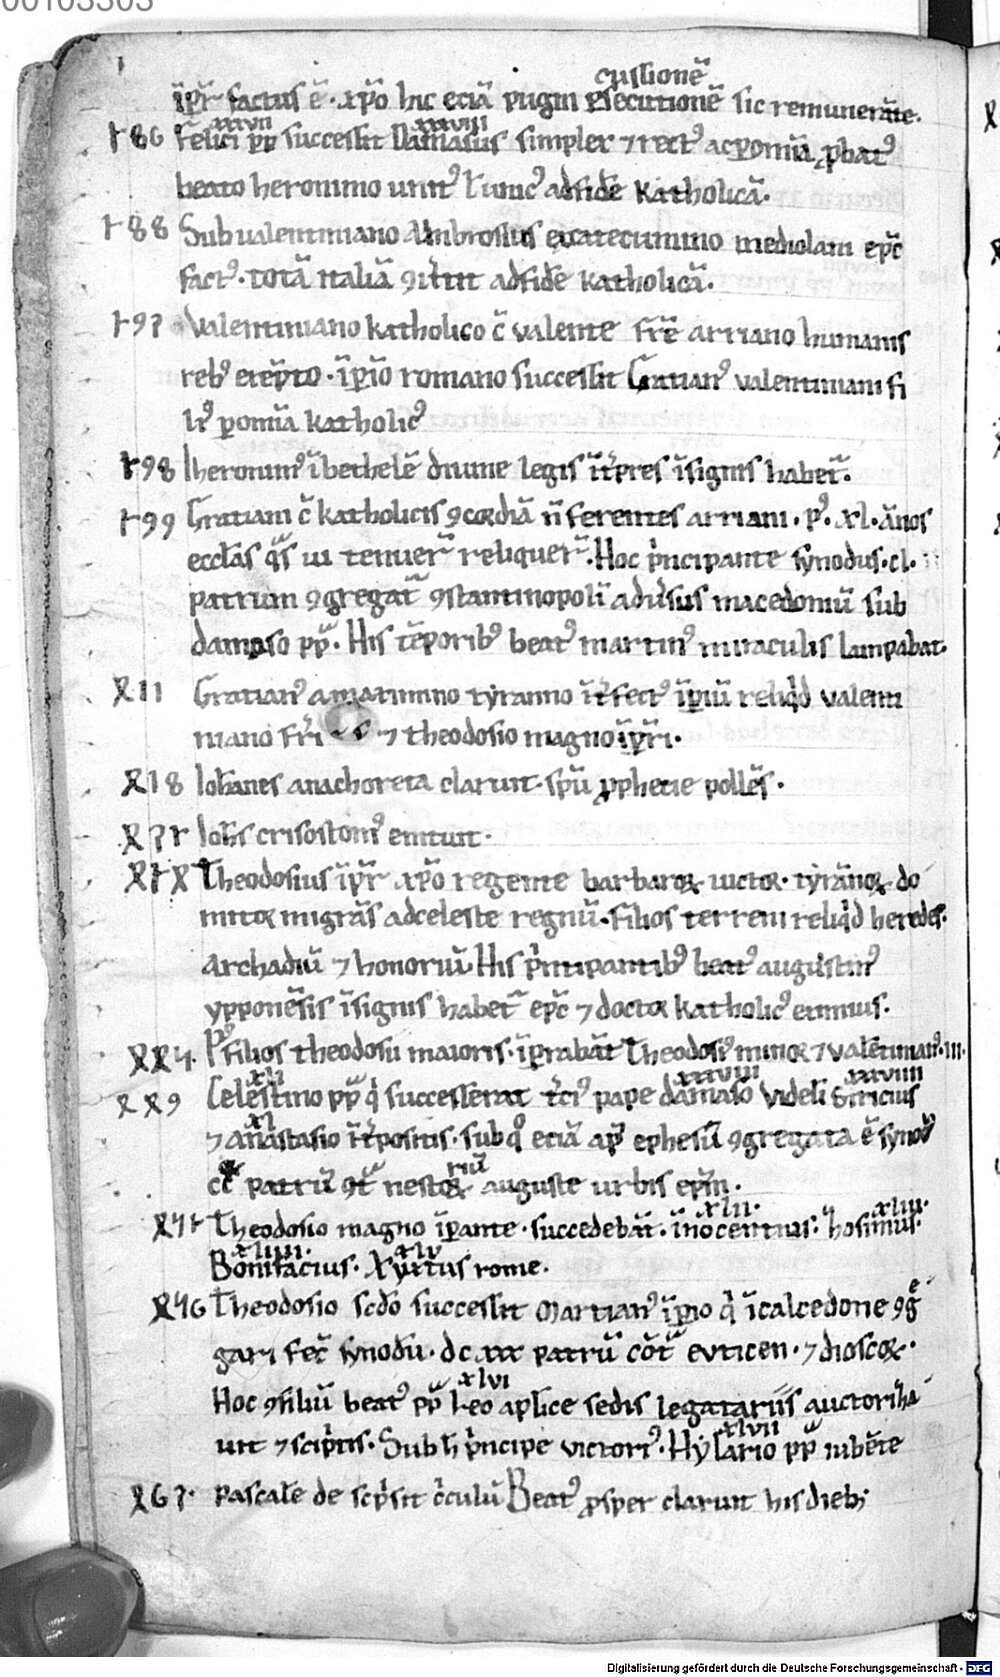 00103303
cussionē
īpr̄ factus ē. xp̄o hic eciā pugni psecutionē sic remunerāte.
xxxvii xxxviii
186 felici pp successit Damasus simplex ⁊ rectꝰ ac p omīa ꝓbatꝰ
beato heronimo unitꝰ adfidē katholicā.
188 Sub valentiniano Ambrosius ex catecumino mediolani ep̄c
factꝰ. totā italiā ꝯuertit adfidē katholicā.
197 Valentiniano katholico c̄ valente fr̄e arriano humanis
rebꝰ erepto. īpio romano successit Gratianꝰ valentiniani fi
liꝰ p omīa katholicꝰ
198 Iheronimꝰ ī bethelē diuine legis īt̄pres īsignis habet̄.
199 Gratiani c̄ katholicis ꝯcordiā n̄ ferentes arriani. pꝰ. xl. ānos
eccl̄as q̄s ui tenuer̄ reliquer̄. Hoc p̄ncipante synodus. cl.
patrum ꝯgregat̄ ꝯstantinopoli aduersus macedoniū sub
damaso pp̄. His tēporibꝰ beatꝰ martinꝰ miraculis lampabat.
Ꝝ11 Gratianꝰ a maximino tyranno īt̄fectꝰ īpiū reliqd valenti
niano fr̄i ⁊ theodosio magno īpr̄i.
Ꝝ18 Ioh̄anes anachoreta claruit. spū ꝓphetie pollēs.
Ꝝ71 Ioh̄s crisostomꝰ emicuit.
Theodosius īpr̄ xp̄o regente barbaroꝝ uictor. tyrānoꝝ do
mitor migrās adceleste regnū. filios terreni reliqd heredes.
Archadiū ⁊ honoriū. His p̄ncipantibꝰ beatꝰ augustinꝰ
ypponēsis īsignis habet̄ ep̄c ⁊ doctor katholicꝰ eximius.
Pꝰ filios theodosii maioris. īprabāt Theodosiꝰ minor ⁊ valētinianꝰ. iii.
xlii xxxviii xxxviiii
Celestino pp̄ q̄ successerat t̄ciꝰ pape damaso videli Siricius
xl
⁊ anastasio īt̄positis. sub qo eciā ap̄ ephesū ꝯgregata ē synodꝰ
cc patrū ꝯt̄ nestoriū auguste urbis ep̄m.
xlii. xliii.
Theodosio magno īpante. succedebāt. īnocentius. hosimus.
xliiii. xlv
Bonifacius. Xystus rome.
Theodosio sc̄do successit Martianꝰ īpio q̄ ī calcedone ꝯgre
gari fec̄ synodū. dc xxx patrū cōt̄ euticen. ⁊ dioscoꝝ.
xlvi
Hoc ꝯsiliū beatꝰ pp̄ Leo aplice sedis legatariis auctori ha
xlvii
uit ⁊ scip̄tis. Sub h̄ p̄ncipe victoriꝰ. Hylario pp̄ iubēte
Ꝝ67. pascale de scp̄sit c̄culū Beatꝰ ꝓsper claruit his dieb;
Digitalisierung gefördert durch die Deutsche Forschungsgemeinschaft - DFG